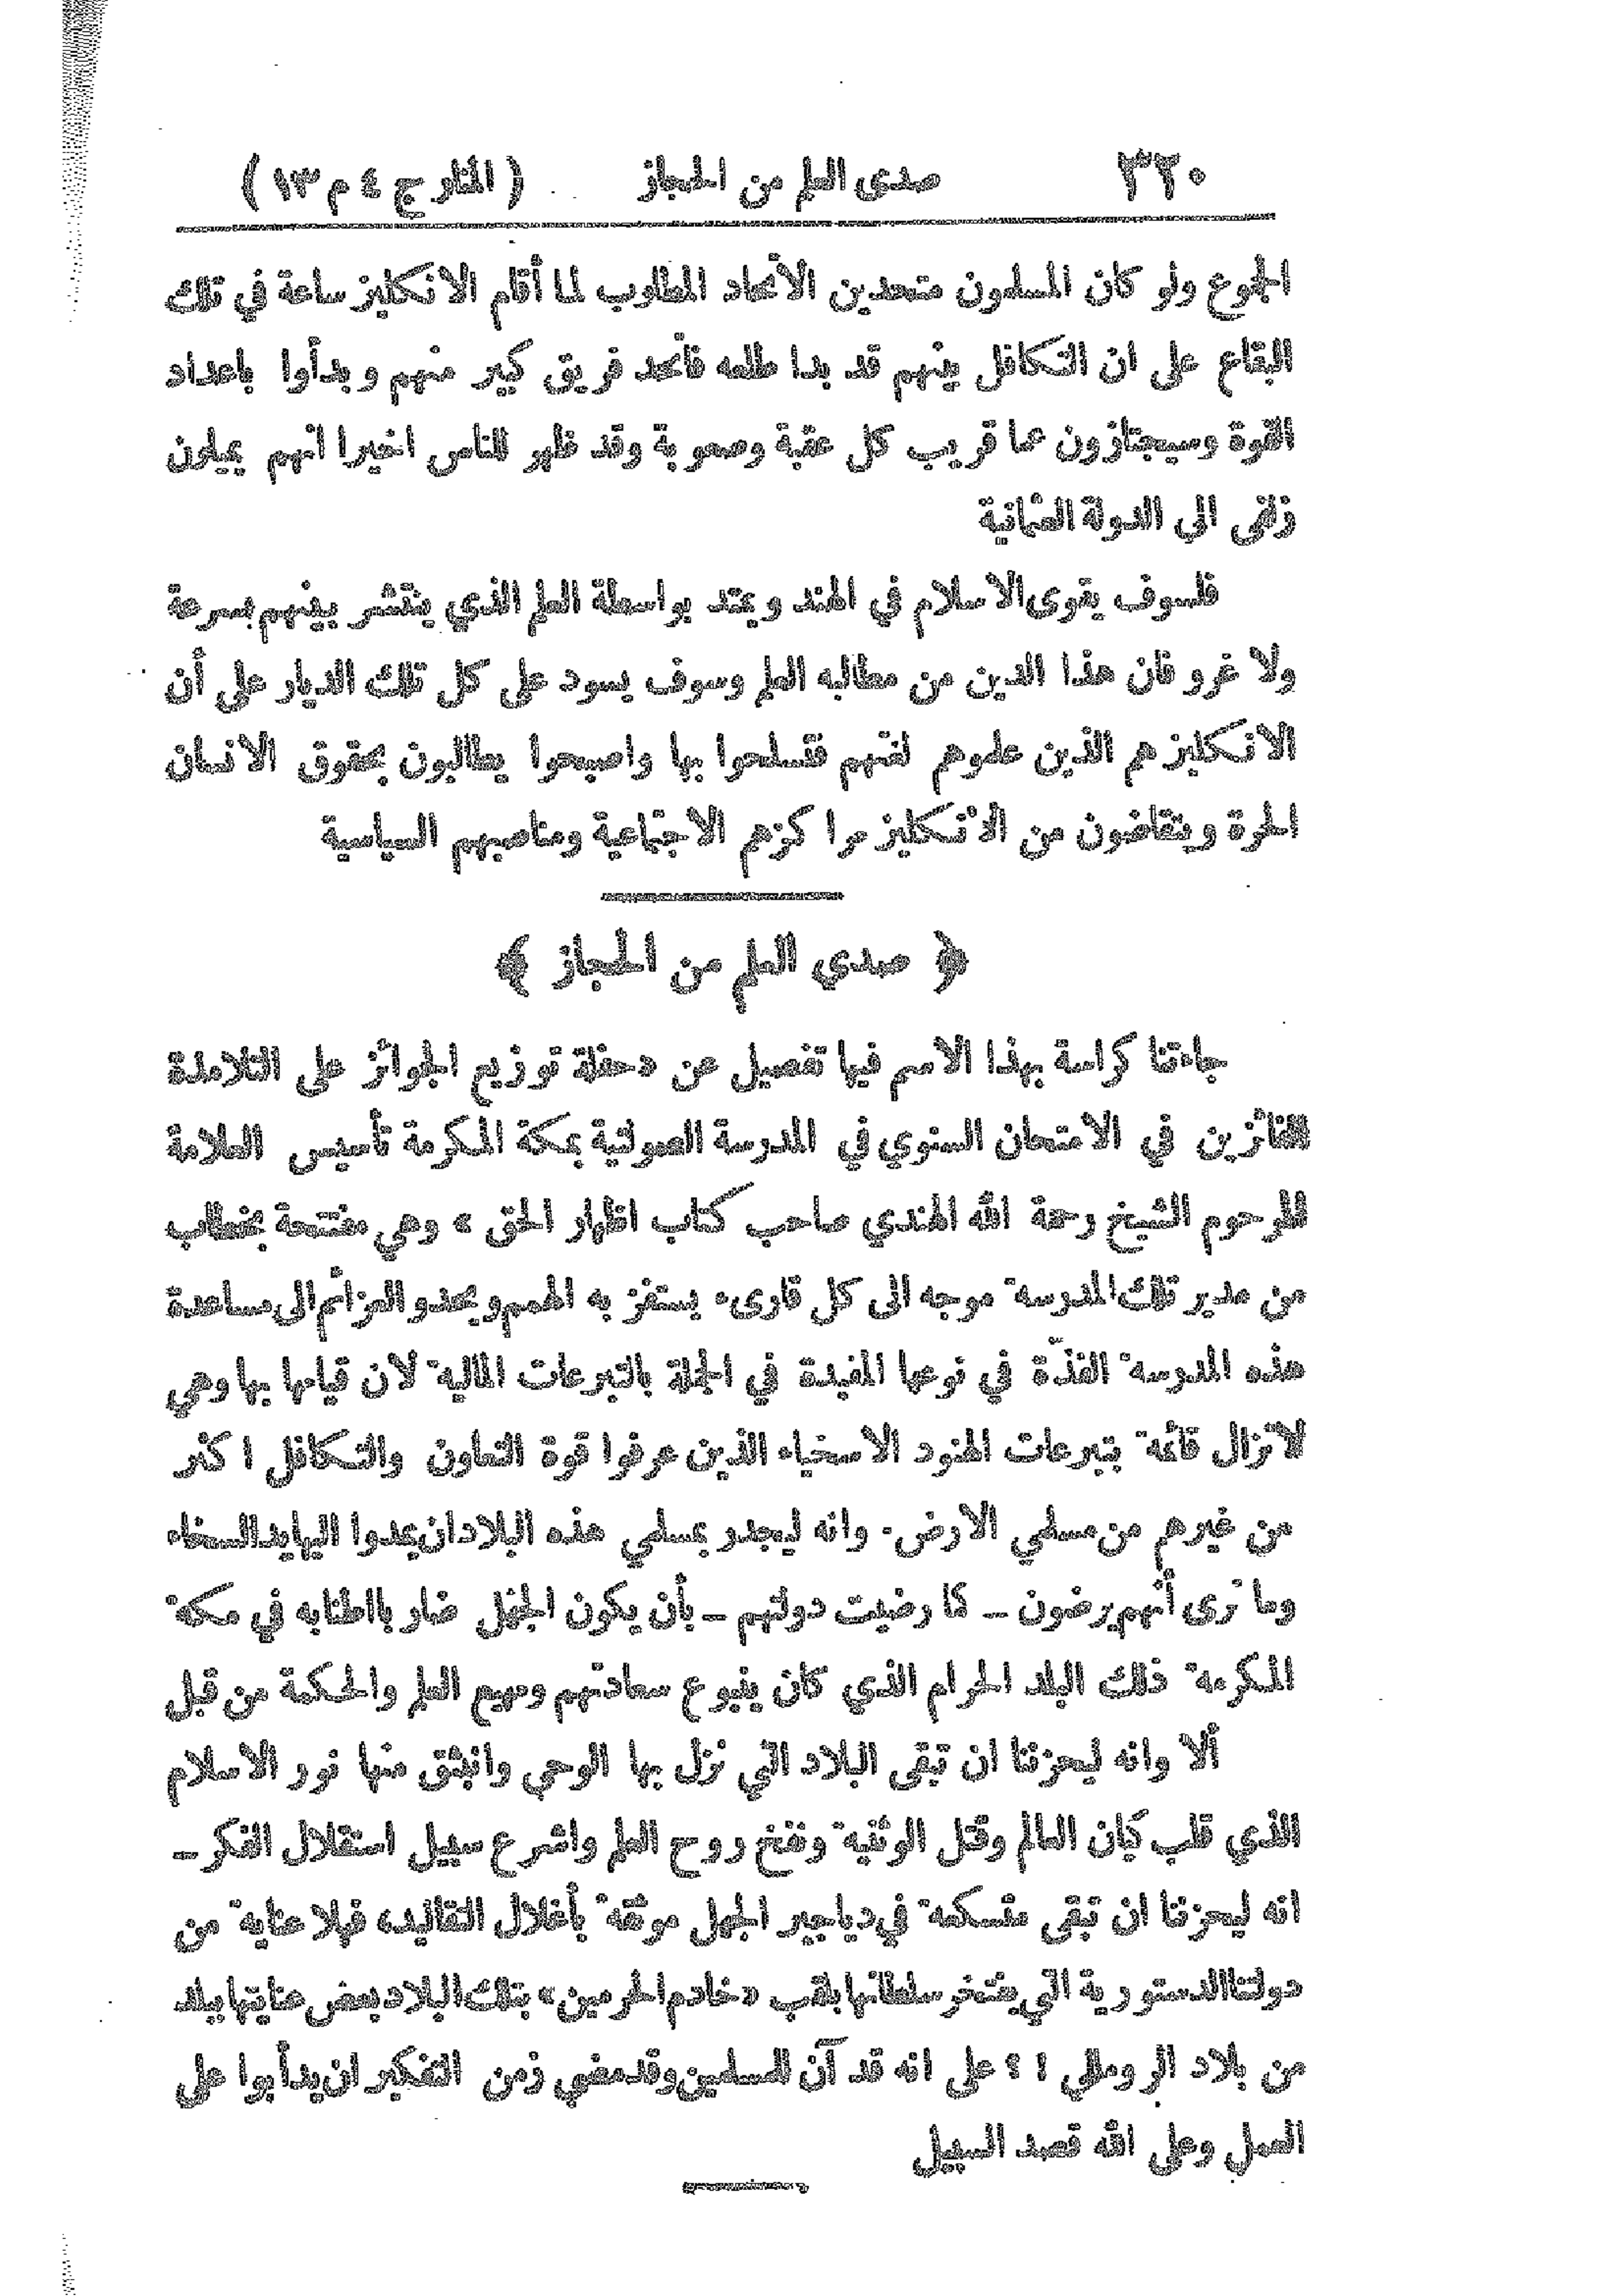 ٣٢٠ صدى العلم من الحجاز ( المنار ج ٤ م ١٣ )
الجوع ولو كان المسلمون متحدين الاتحاد المطلوب لما أقام الانكليز ساعة في تلك
البقاع على ان التكافل بينهم قد بدا طلعه فاتحد فريق كبير منهم وبدأوا باعداد
القوة وسيجتازون عما قريب كل عقبة وصعوبة وقد ظهر للناس اخيرا انهم يميلون
زلفى الى الدولة العثمانية
فلسوف يقوى الاسلام في الهند ويمتد بواسطة العلم الذي ينتشر بينهم بسرعة
ولا غرو فان هذا الدين من مطالبه العلم وسوف يسود على كل تلك الديار على أن
الانكليز هم الذين علموهم لغتهم فتسلحوا بها واصبحوا يطالبون بحقوق الانسان
الحرة ويتقاضون من الانكليز مراكزهم الاجتماعية ومناصبهم السياسية
﴿ صدي العلم من الحجاز ﴾
جاءتنا كراسة بهذا الاسم فيها تفصيل عن دحفلة توزيع الجوائز على التلامذة
الفائزين في الامتحان السنوي في المدرسة الصولتية بمكة المكرمة تأسيس العلامة
المرحوم الشيخ رحمة الله الهندي صاحب كتاب اظهار الحق » وهي مفتتحة بخطاب
من مدير تلك المدرسة موجه الى كل قارىء يستفز به الهمم ويحدو العزائم الى مساعدة
هذه المدرسة الفذّة في نوعها المفيدة في الجملة بالتبرعات المالية لان قيامها بها وهي
لا تزال قائمة بتبرعات الهنود الاسخياء الذين عرفوا قوة التعاون والتكافل اكثر
من غيرهم من مسلمي الارض. وانه ليجدر بمسلمي هذه البلاد ان يمدوا اليها يد السخاء
وما نرى أنهم يرضون ــ كما رضيت دولتهم ــ بأن يكون الجهل ضاربا اطنابه في مكة
المكرمة ذلك البلد الحرام الذي كان ينبوع سعادتهم ومهيع العلم والحكمة من قبل
ألا وانه ليحزننا ان تبقى البلاد التي نزل بها الوحي وانبثق منها نور الاسلام
الذي قلب كيان العالم وقتل الوثنية ونفخ روح العلم واشرع سبيل استقلال الفكر ــ
انه ليحزننا ان تبقى متسكعة في دياجير الجهل موثقة بأغلال التقاليد، فهلا عناية من
دولتنا الدستورية التي يفتخر سلطانها بلقب «خادم الحرمين» بتلك البلاد بعض عنايتها ببلد
من بلاد الروملي ! ؟ على انه قد آن للمسلمين وقد مضي زمن التفكير ان يدأبوا على
العمل وعلى الله قصد السبيل